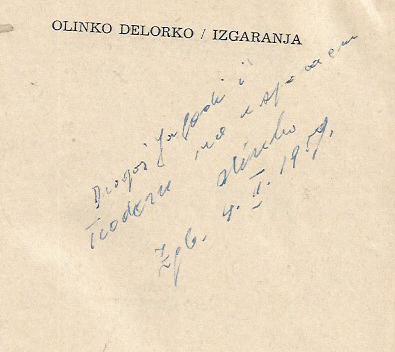 OLINKO DELORKO / IZGARANJA
Dragoj Jagodi i
Teodoru na uspomenu
Olinko
Zgb. 4. II. 1959.